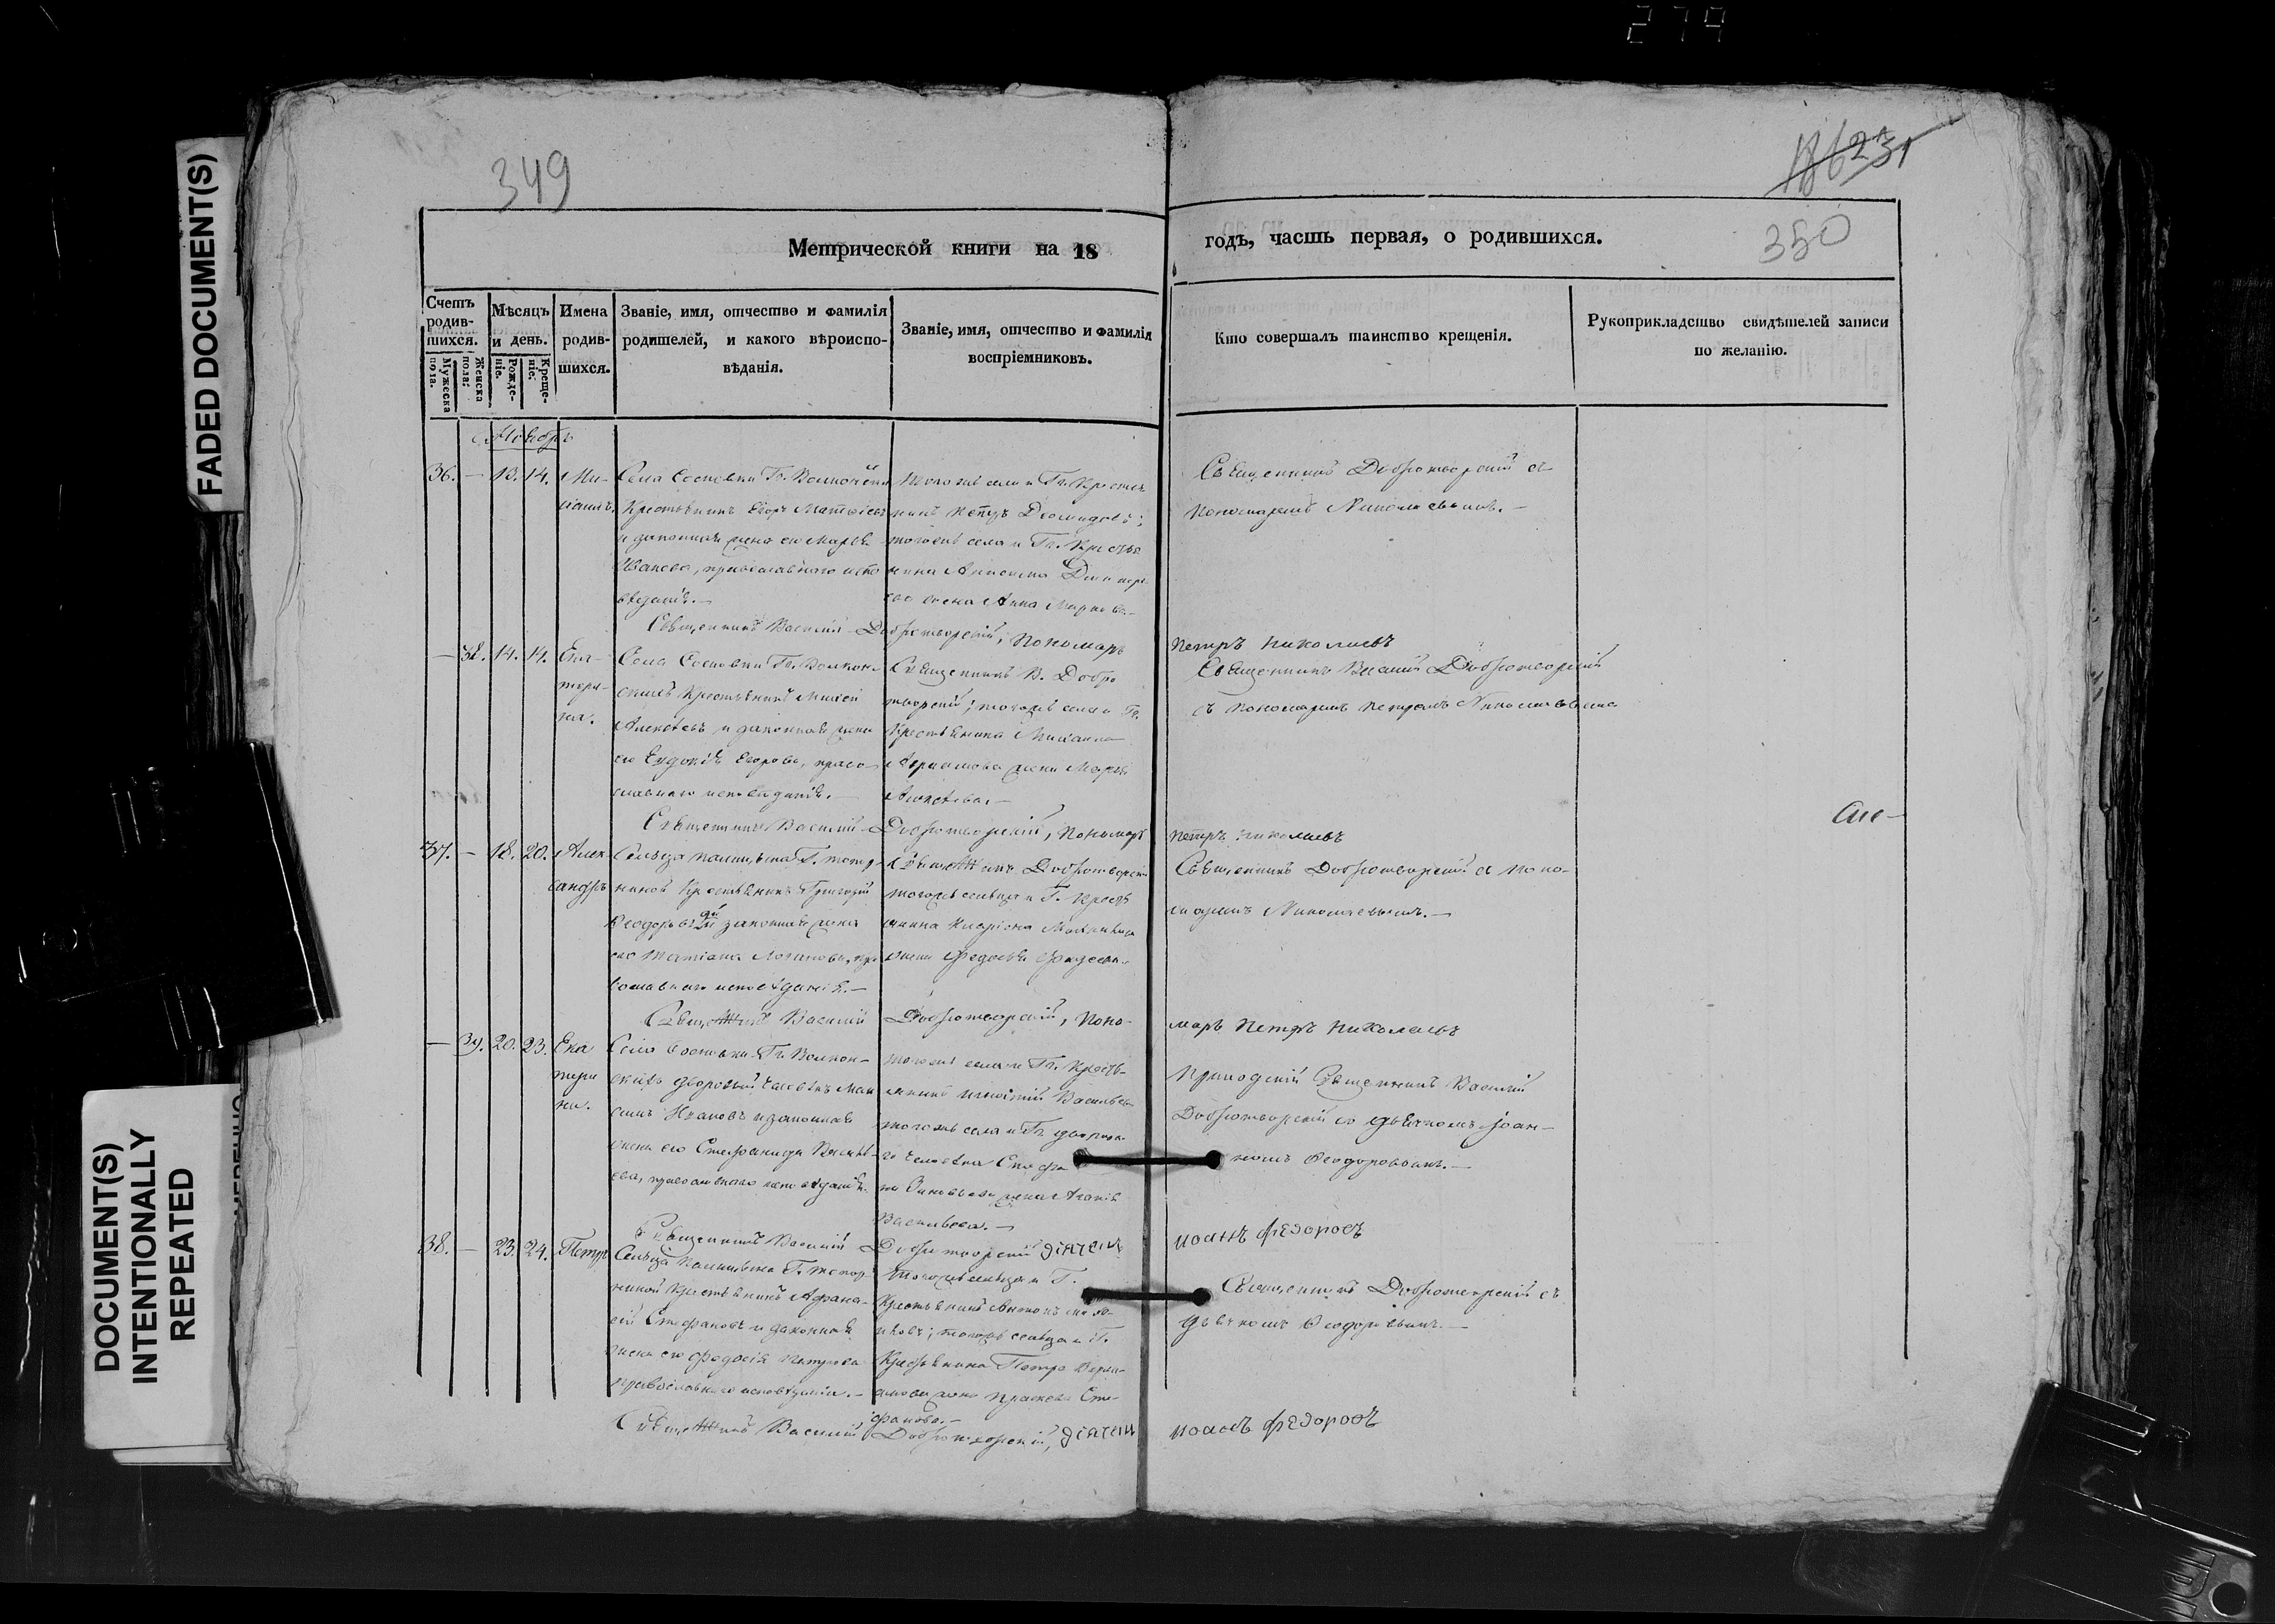 279
FADED DOCUMENT(S)
DOCUMENT(S)
INTENTIONALLY
REPEATED
349
350
Метрической книги на 18
годъ, часть первая, о родившихся.
Счетъ родившихся.
Мужеска пола.
Женска пола.
Мѣсяцъ и день.
Рожденіе.
Крещеніе.
Имена родившихся.
Званіе, имя, отчество и фамилія
родителей, и какого вѣроиспо-
вѣданія.
Званіе, имя, отчество и фамилія
воспріемниковъ.
Кто совершалъ таинство крещенія.
Рукоприкладство свидѣтелей записи
по желанію.
Ноябрь
36. — 13. 14. Ми-
хаилъ.
Села Сосновки Гг. Волконски
Крестьянинъ Егоръ Матвѣевъ
и законная жена его Марья
Иванова, православнаго испо
вѣданія.—
того же села и Гг. Кресть
нинъ Петръ Діомидовъ;
тогожъ села и Гг. Кресть
нина
жена Анна Маркова
Священникъ Добротворскій съ
Пономаремъ Николаевымъ.—
Священникъ Василій Добротворскій, Пономарь
Петръ Николаевъ
— 38. 14. 14. Ека-
тери-
на.
Села Сосновки Гг. Волкон-
скихъ Крестьянинъ
Алексѣевъ и законная жена
его Евдокія Егорова, право-
славнаго исповѣданія.—
Священникъ В. Добро
творскій; тогожъ села и Гг.
Крестьянина Михаила
Абрамова жена Марья
Алексѣева.—
Священникъ Василій Добротворскій
съ Пономаремъ Петромъ Николаевымъ
Священникъ Василій Добротворскій, Пономарь
Петръ Николаевъ
37. — 18. 20. Алек-
сандръ
Сельца Г.
Крестьянинъ Григорій
Ѳеодоровъ и законная жена
его Татіана пра
вославнаго исповѣданія.—
Священникъ Добротворскій
тогожъ сельца и Г. Кресть
янина
жена Федосья
Священникъ Добротворскій съ Поно-
маремъ Николаевымъ.—
Священникъ Василій Добротворскій, Поно-
марь Петръ Николаевъ
— 39. 20. 23. Ека
тери
на.
Села Сосновки Гг. Волкон-
скихъ дворовый человѣкъ Мак
симъ Ивановъ и законная
жена его Стефанида Василь-
ева, православнаго исповѣданія.
тогожъ села и Гг. Кресть-
янинъ Игнатій Васильевъ
тогожъ села и Гг. дворова-
го человѣка
жена Агапія
Васильева.—
Приходскій Священникъ Василій
Добротворскій съ дьячкомъ Іоан-
номъ Ѳеодоровымъ.—
Священникъ Василій Добротворскій дьячекъ
Иоаннъ Федоровъ
38. — 23. 24. Петръ
Сельца Г.
Крестьянинъ Афана-
сій Стефановъ и законная
жена его Федосія Петрова
православнаго исповѣданія.—
тогожъ сельца и Г.
Крестьянинъ Антонъ
тогожъ сельца и Г.
Крестьянина Петра
жена Прасковья Сте-
фанова.—
Священникъ Добротворскій съ
дьячкомъ Ѳеодоровымъ.—
Священникъ Василій Добротворскій, дьячекъ
Иоаннъ Федоровъ